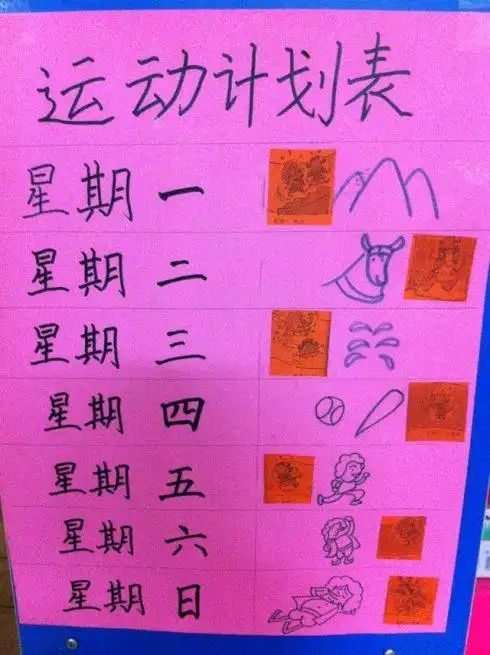 运动计划表
星期一
星期二
星期三
星期四
星期五
星期六
星期日